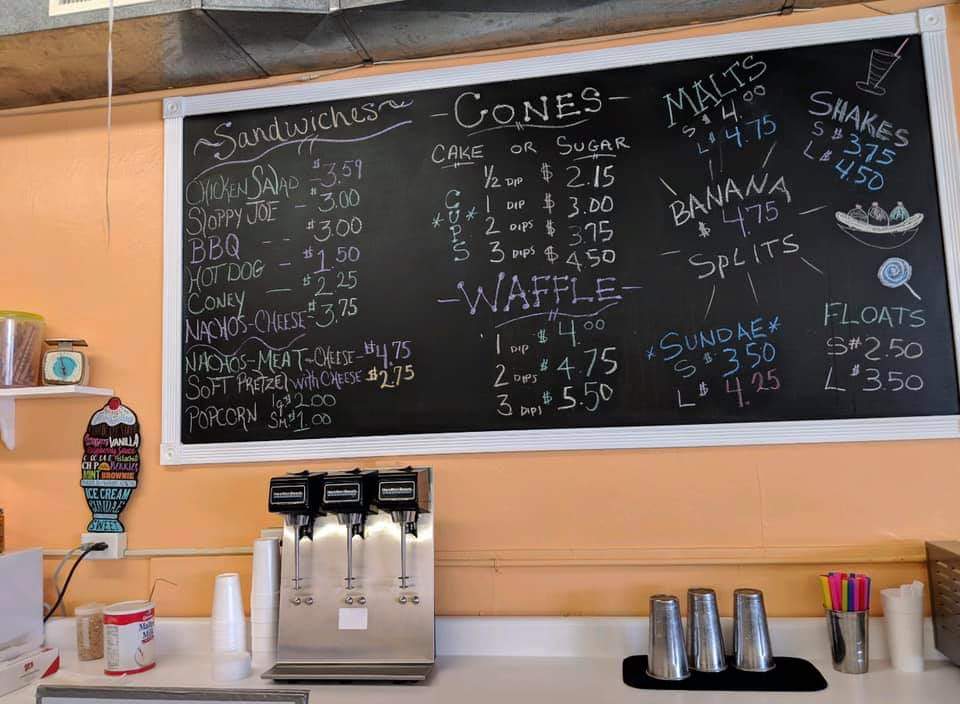 ~Sandwiches~
CHICKEN SALAD - $3.59
SLOPPY JOE - $3.00
BBQ - - $3.00
HOT DOG - $1.50
CONEY - $2.25
NACHOS-CHEESE - $3.75
NACHOS-MEAT-CHEESE - $4.75
SOFT PRETZEL with CHEESE - $2.75
POPCORN lg $2.00
SM $1.00
-CONES-
CAKE OR SUGAR
*CUPS*
1/2 DIP $ 2.15
1 DIP $ 3.00
2 DIPS $ 3.75
3 DIPS $ 4.50
-WAFFLE-
1 DIP $ 4.00
2 DIPS $ 4.75
3 DIPS $ 5.50
MALTS
S $ 4.00
L $ 4.75
SHAKES
S $ 3.75
L $ 4.50
BANANA
$ 4.75
SPLITS
*SUNDAE*
S $ 3.50
L $ 4.25
FLOATS
S $ 2.50
L $ 3.50
VANILLA
BROWNIE
ICE CREAM
SUNDAE
SWEET
Hamilton Beach
Hamilton Beach
Hamilton Beach
Malted
Milk